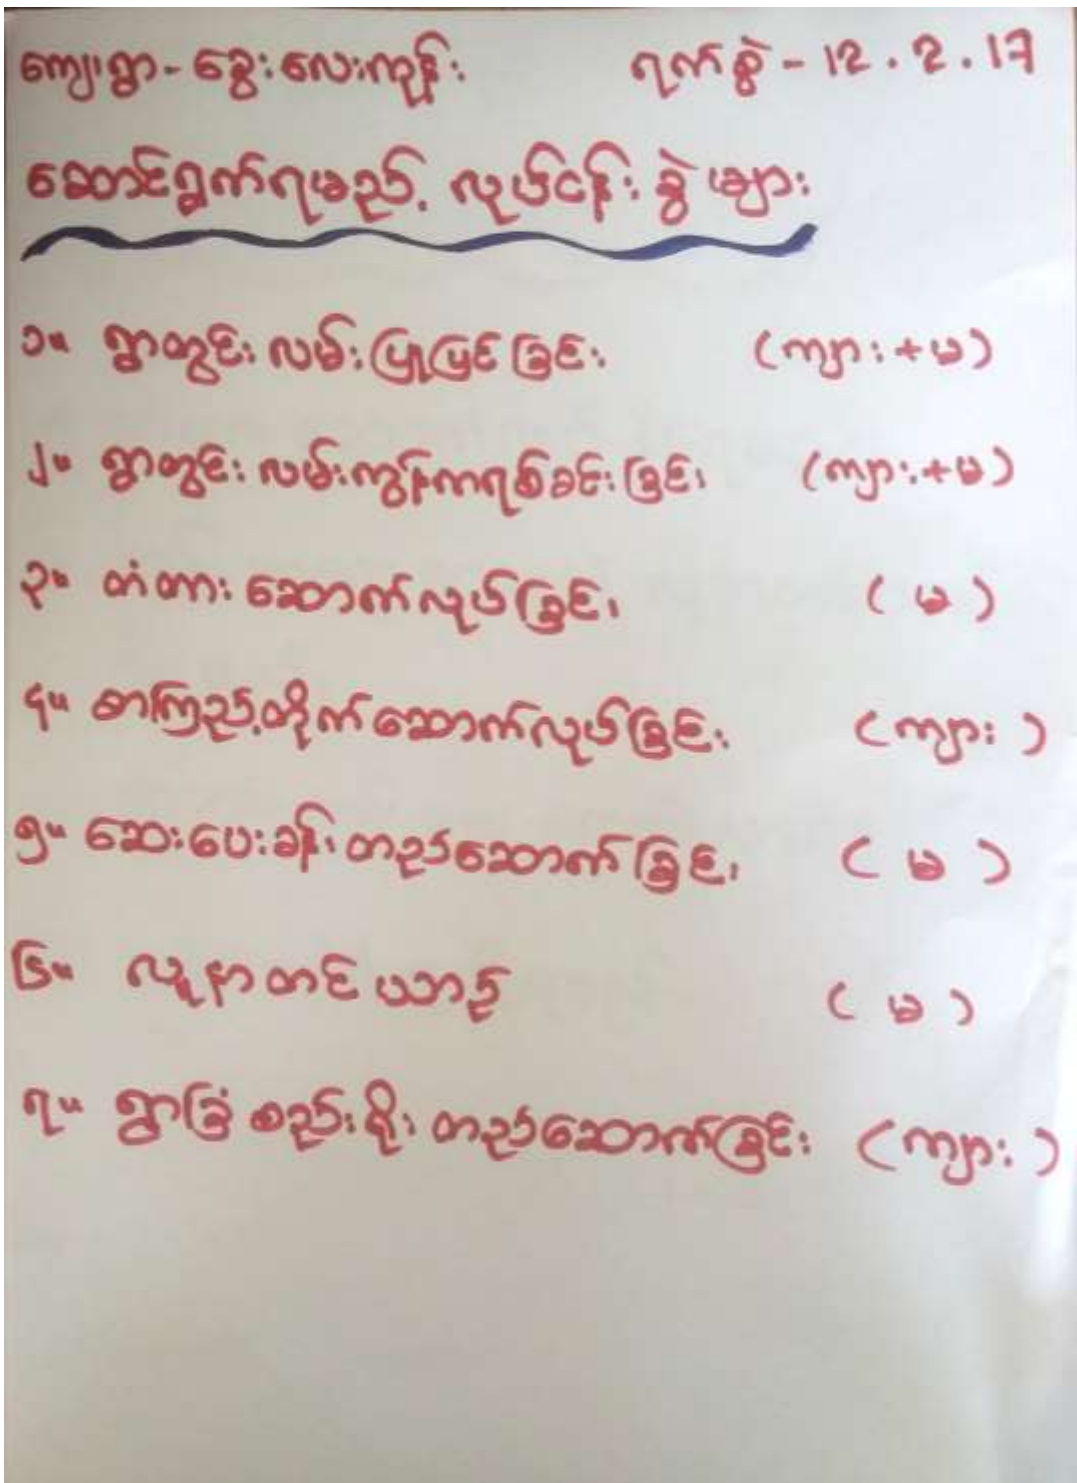 ကျေးရွာ - ခွေးလေးကျွန်း ရက်စွဲ - 12.2.17
ဆောင်ရွက်ရမည့် လုပ်ငန်းခွဲများ
၁။ ရွာတွင်းလမ်းပြုပြင်ခြင်း (ကျား+မ)
၂။ ရွာတွင်းလမ်းကွန်ကရစ်ခင်းခြင်း (ကျား+မ)
၃။ တံတားဆောက်လုပ်ခြင်း (မ)
၄။ စာကြည့်တိုက်ဆောက်လုပ်ခြင်း (ကျား)
၅။ ဆေးပေးခန်းတည်ဆောက်ခြင်း (မ)
၆။ လူနာတင်ယာဉ် (မ)
၇။ ရွာခြံစည်းရိုးတည်ဆောက်ခြင်း (ကျား)